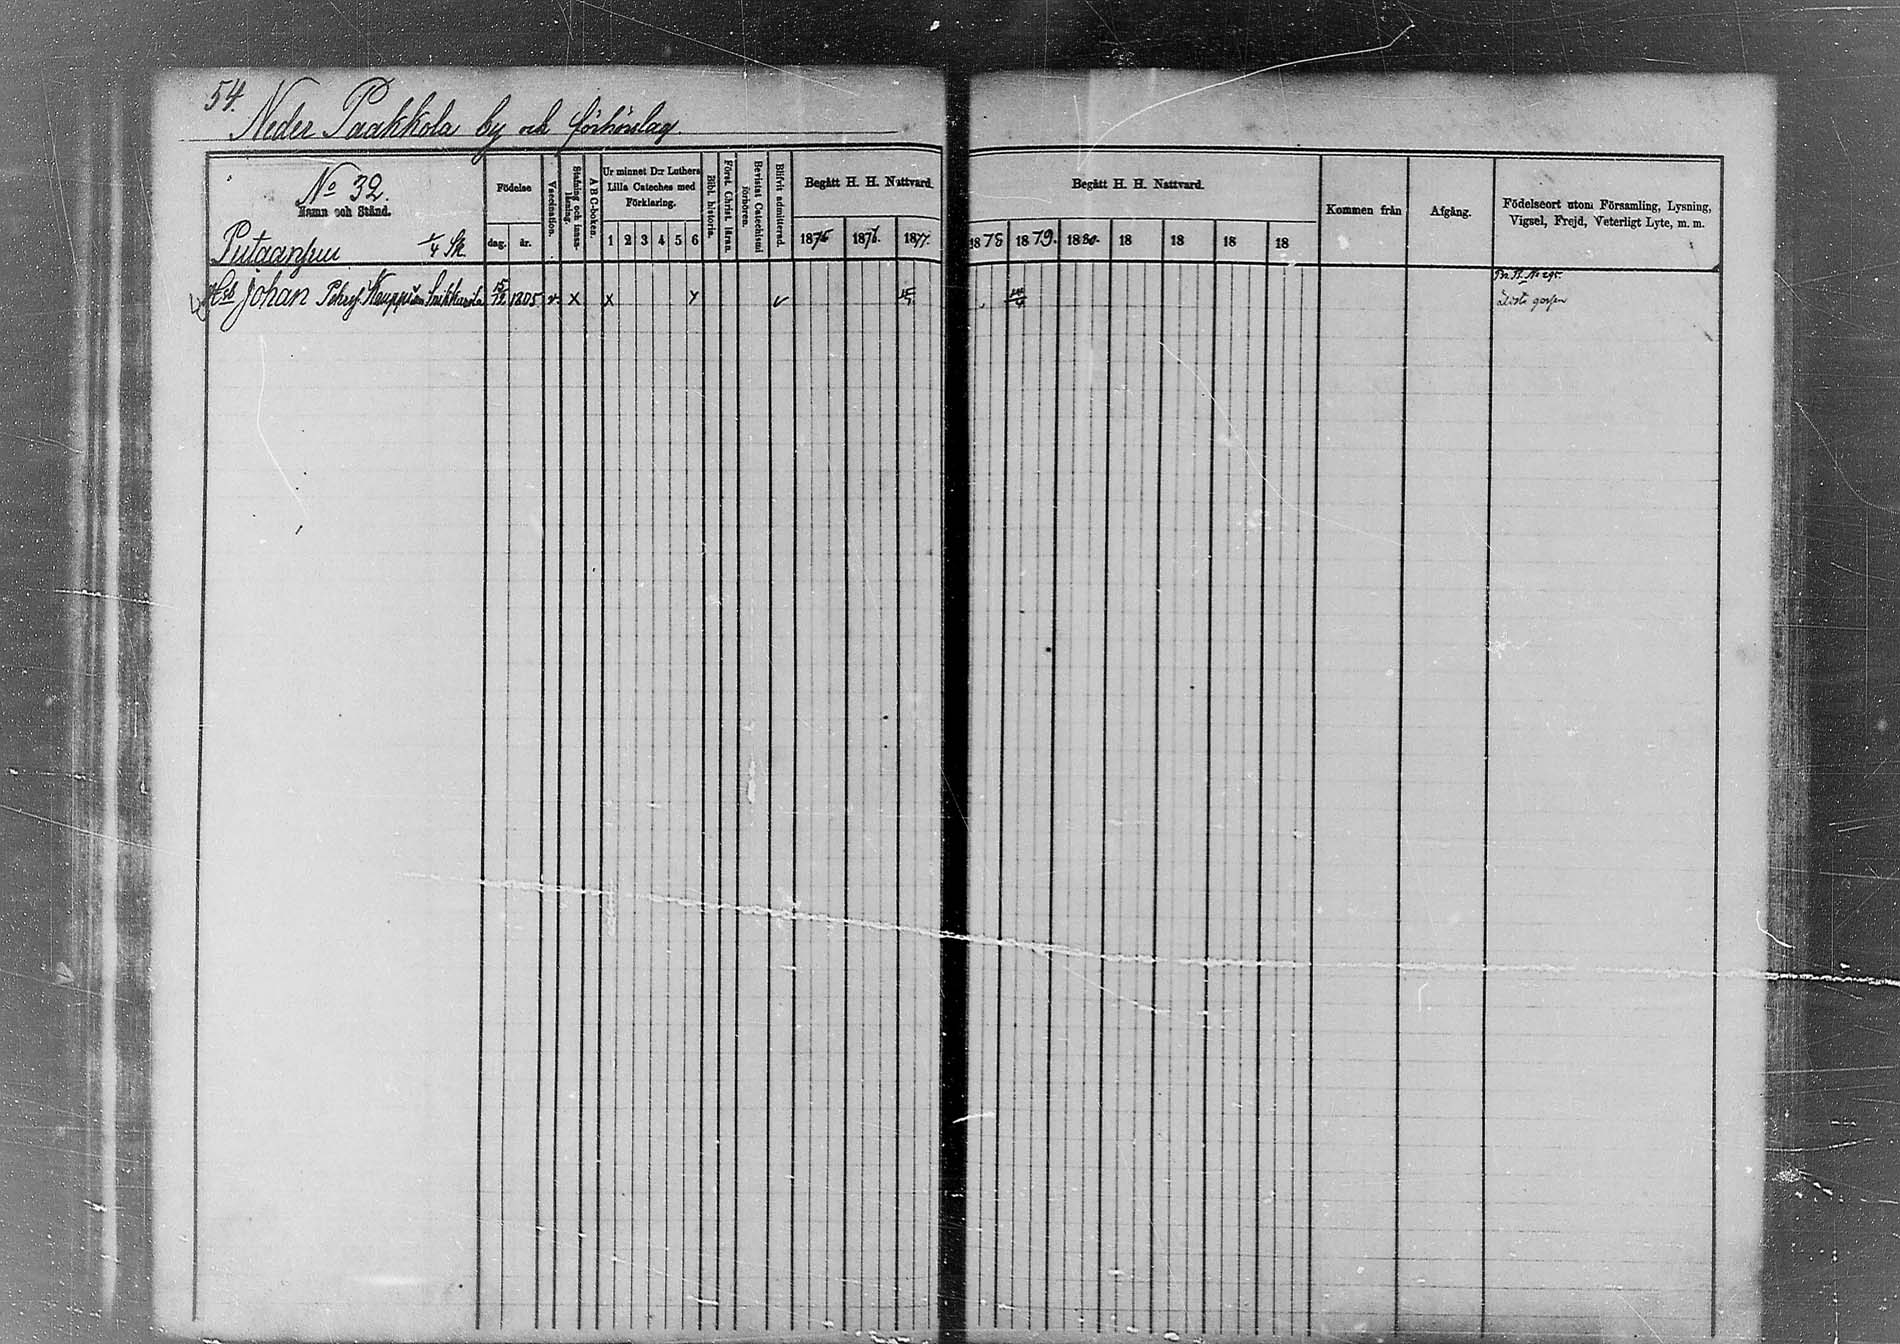 54.
Neder Paakkola by och förhörslag
No 32.
Namn och Stånd.
1/4 Sk.
Födelse
dag. år.
Vaccination.
Stafning och innan-läsning.
A B C-boken.
Ur minnet D:r Luthers
Lilla Cateches med
Förklaring.
1 2 3 4 5 6
Bibl. historia.
Först. Christ. läran.
Bevistat Catechismi förhören.
Blifvit admitterad.
Begått H. H. Nattvard.
1875 1876. 1877.
Begått H. H. Nattvard.
1878 1879. 1880. 18 18 18 18
Kommen från
Afgång.
Födelseort utom Församling, Lysning,
Vigsel, Frejd, Veterligt Lyte, m. m.
Johan 1805 v. x x v